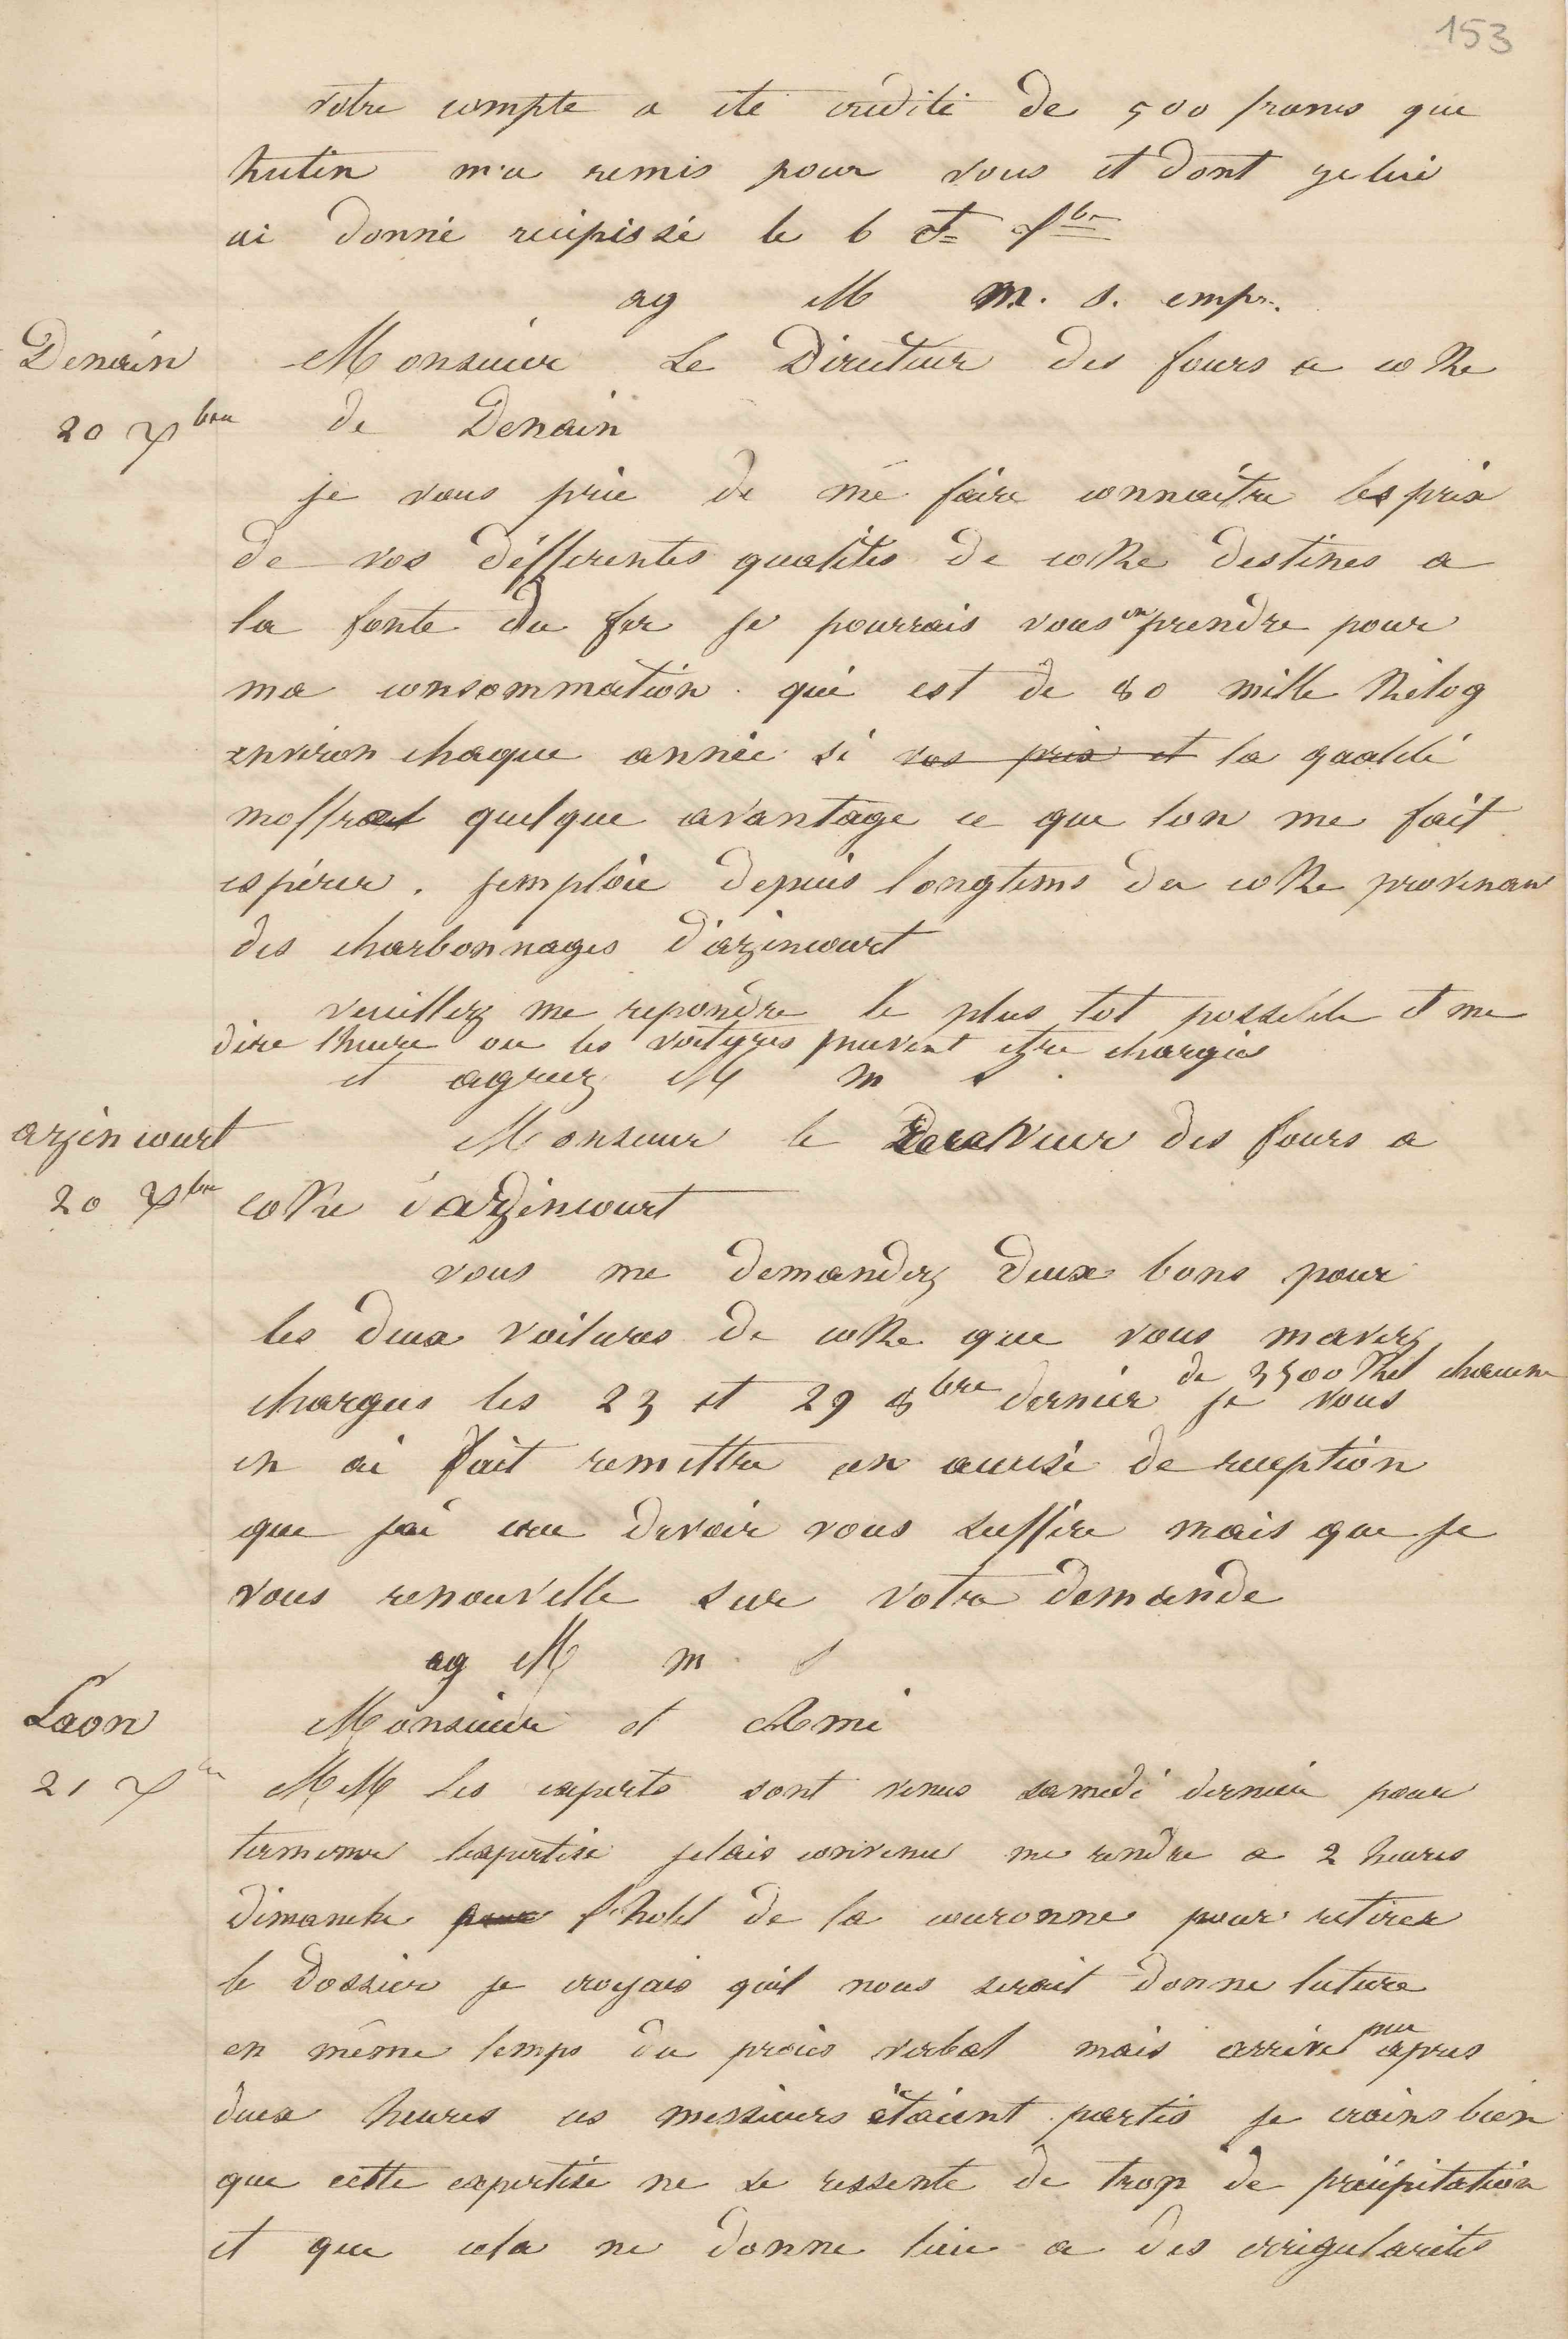 153
votre compte a ete credité de 500 francs que
hutin m'a remis pour vous et dont je lui
ai donné recipissé le 6 
ag M m. s. empr.
Denain
20 Xbre
Monsieur Le Directeur des fours a coke
de Denain
je vous prie de me faire connaitre les prix
de vos differentes qualités de coke destines a
la fonte du fer je pourrais vous en prendre pour
ma consommation qui est de 80 mille kilog
environ chaque année si vos prix et la qualité
moffrait quelque avantage ce que lon me fait
espérer. jemploie depuis longtems du coke provenan
des charbonnages d'azincourt
veuillez me repondre le plus tot possible et me
dire lheure ou les voitures peuvent etre chargées
et agreez M m s
azincourt
20 Xbre
Monsieur le Directeur des fours a
coke d'azincourt
vous me demandez deux bons pour
les deux voitures de coke que vous mavez
chargées les 23 et 29 8bre dernier de 3500 kil chacune je vous
en ai fait remettre un accusé de reception
que jai cru devoir vous suffire mais que je
vous renouvelle sur votre demande
ag M m s
Laon
21 Xbre
Monsieur et Ami
MM les experts sont venus samedi dernier pour
terminer lexpertise jetais convenu me rendre a 2 heures
dimanche pour l'hotel de la couronne pour retirer
le dossier je croyais quil nous serait donne lecture
en même temps du procès verbal mais arrivé peu apres
deux heures ces messieurs étaient partis je crains bien
que cette expertise ne se ressente de trop de précipitation
et que cela ne donne lieu a des irrigularités